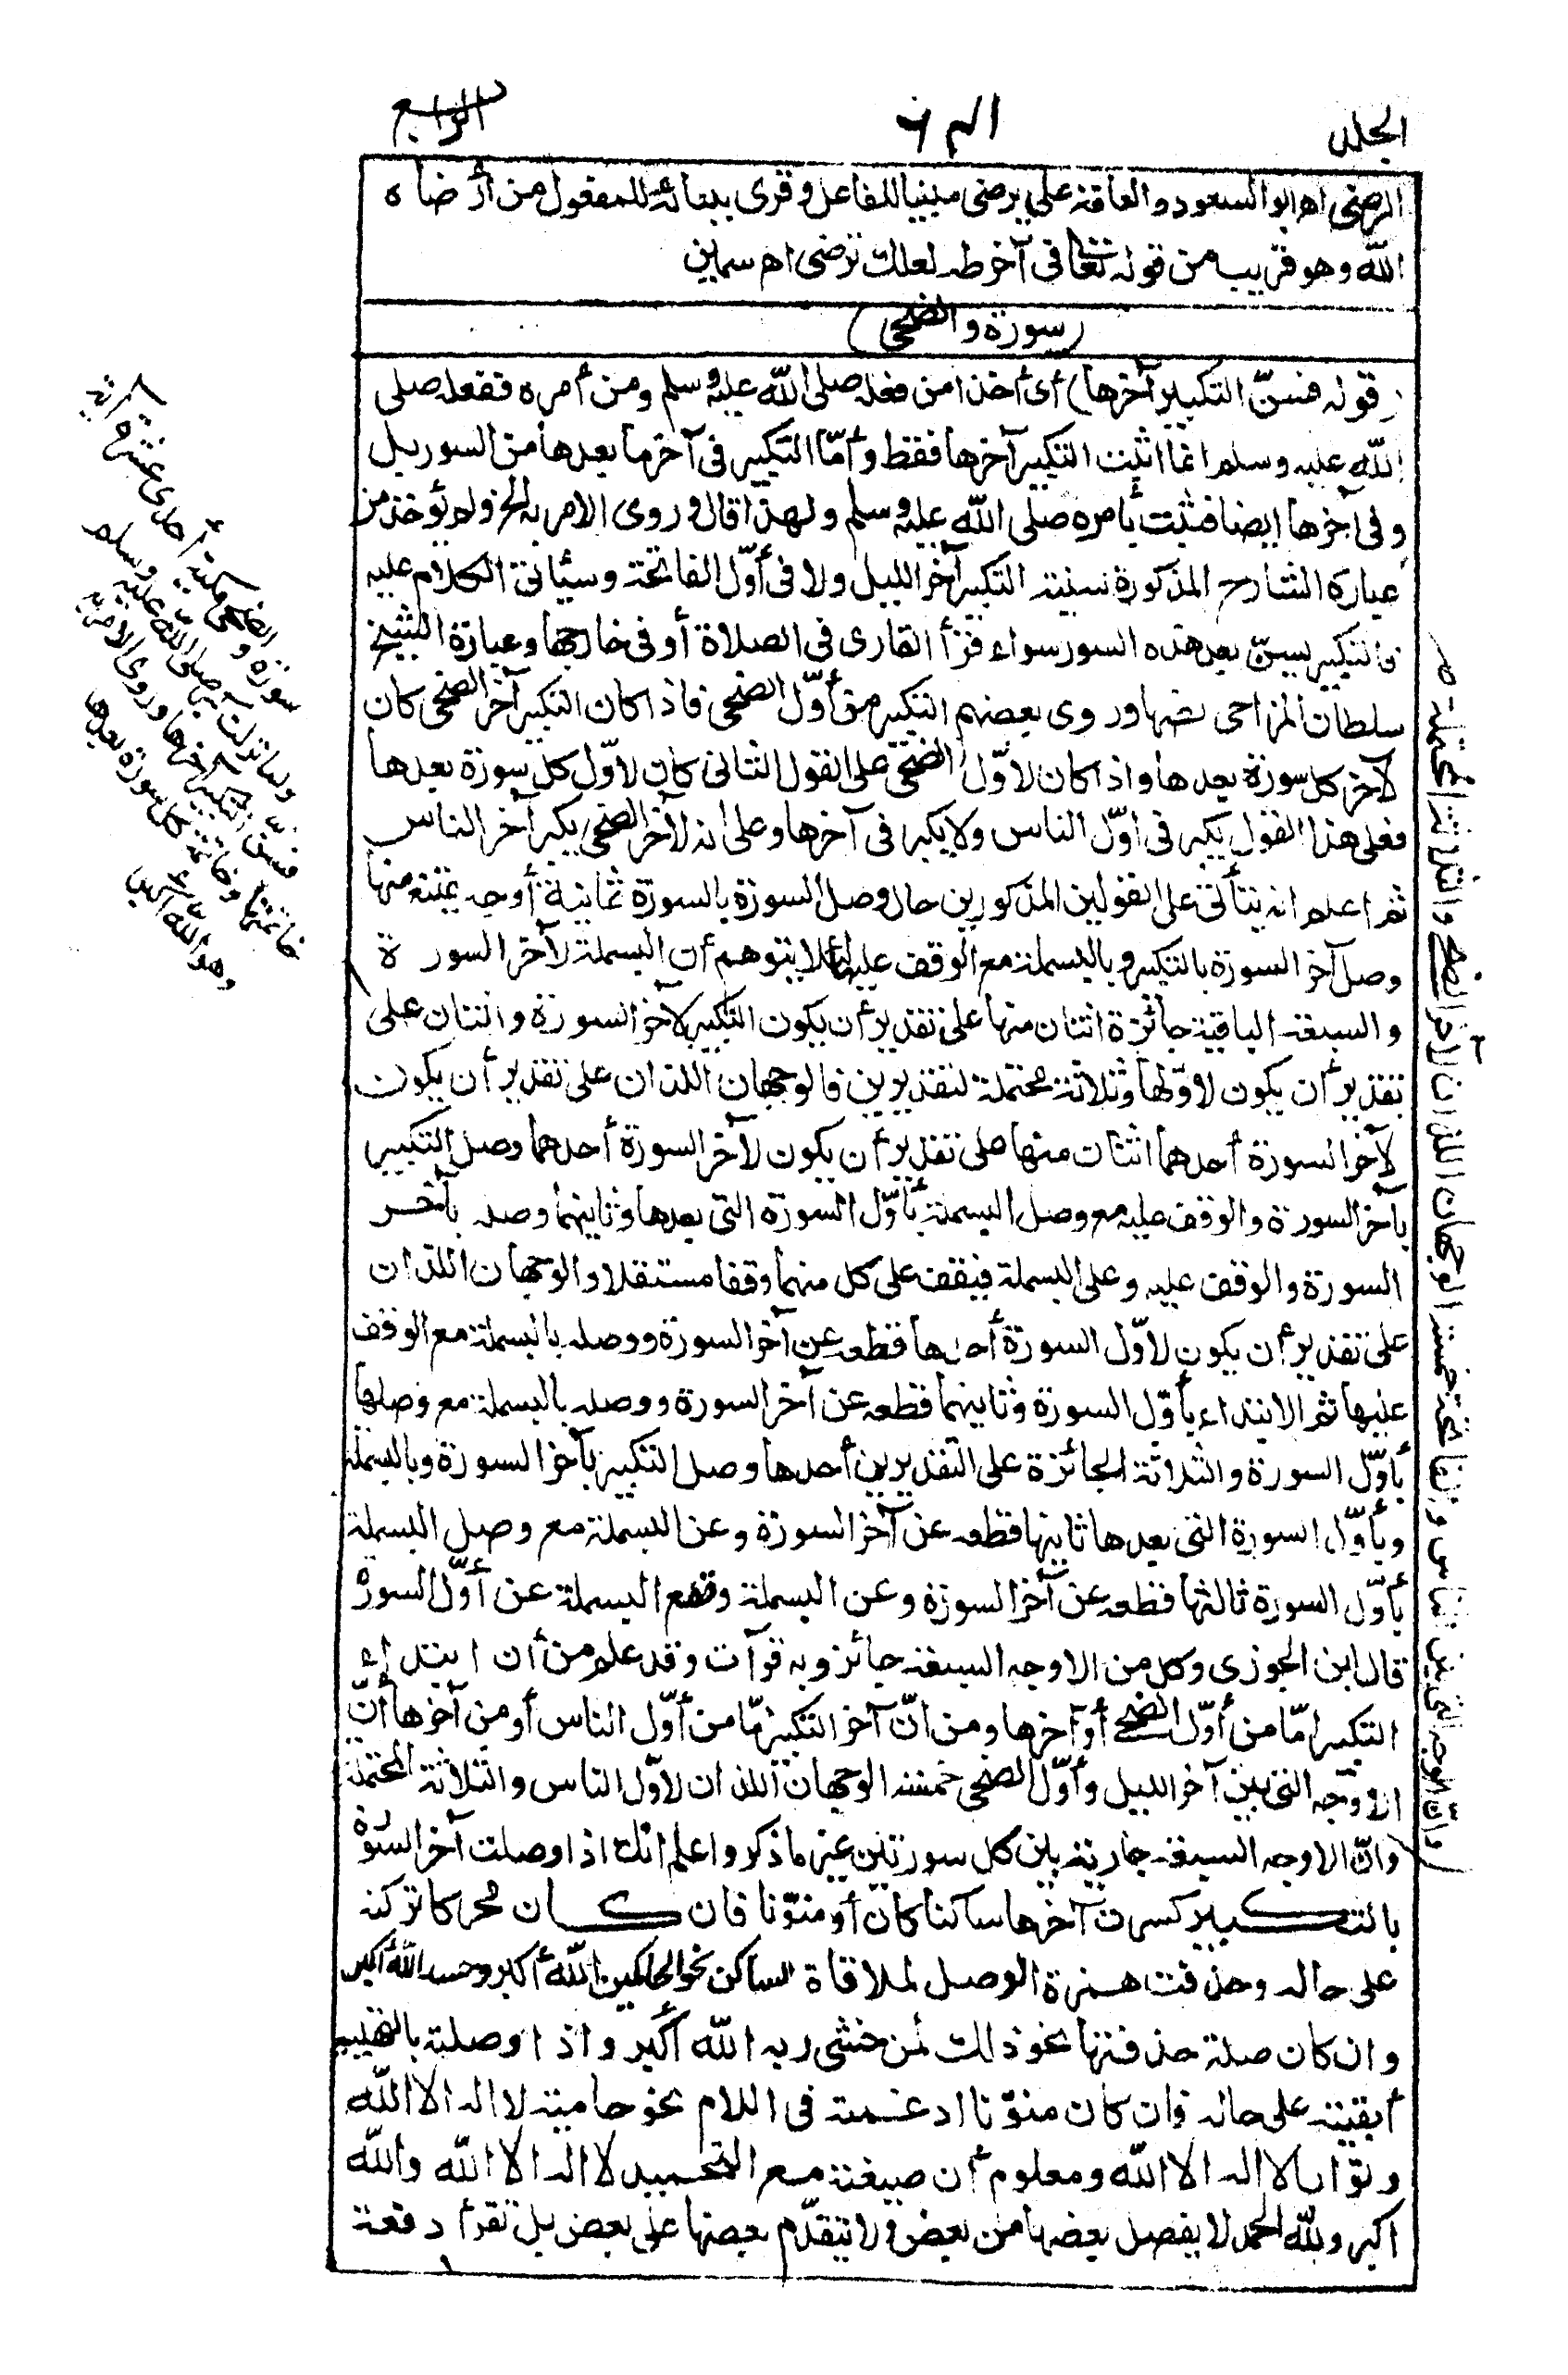 الجلد
الرابع
الرضى اه ابو السعود والعاقة على يرضى مبنيا للفاعل وقرئ ببنائه للمفعول من أرضاه
الله وهو قريب من قوله تعالى فى آخر طه لعلك ترضى اه سمين
(سورة والضحى)
(قوله فسنّ التكبير آخرها) أى أخذا من فعله صلى الله عليه وسلم ومن أمره ففعله صلى
الله عليه وسلم انما اثبت التكبير آخرها فقط وأمّا التكبير فى آخر ما بعدها من السور بل
وفى آخرها ايضا فثبت بأمره صلى الله عليه وسلم ولهذا قال وروى الامر به الخ ولم يؤخذ من
عبارة الشارح المذكورة سنية التكبير آخر الليل ولا فى أوّل الفاتحة وسيأتى الكلام عليه
فالتكبير يسنّ بعد هذه السور سواء قرأ القارى فى الصلاة أو فى خارجها وعبارة الشيخ
سلطان المزاحى نصها وروى بعضهم التكبير من أوّل الضحى فاذا كان التكبير آخر الضحى كان
لآخر كل سورة بعدها واذا كان لاوّل الضحى على القول الثانى كان لاوّل كل سورة بعدها
فعلى هذا القول يكبر فى اوّل الناس ولا يكبر فى آخرها وعلى انه لآخر الضحى يكبر آخر الناس
ثم اعلم انه يتأتى على القولين المذكورين حال وصل السورة بالسورة ثمانية أوجه يمتنع منها
وصل آخر السورة بالتكبير وبالبسملة مع الوقف عليها لئلا يتوهم أن البسملة لآخر السورة
والسبعة الباقية جائزة اثنان منها على تقدير أن يكون التكبير لآخر السورة واثنان على
تقدير أن يكون لاوّلها وثلاثة محتملة لتقديرين فالوجهان اللذان على تقدير أن يكون
لآخر السورة أحدهما اثنان منها على تقدير أن يكون لآخر السورة أحدهما وصل التكبير
بآخر السورة والوقف عليه مع وصل البسملة بأوّل السورة التى بعدها وثانيهما وصله بآخر
السورة والوقف عليه وعلى البسملة فيقف على كل منهما وقفا مستقلا والوجهان اللذان
على تقدير أن يكون لاوّل السورة أحدها قطعه عن آخر السورة ووصله بالبسملة مع الوقف
عليها ثم الابتداء بأوّل السورة وثانيهما قطعه عن آخر السورة ووصله بالبسملة مع وصلها
بأوّل السورة والثلاثة الجائزة على التقديرين أحدها وصل التكبير بآخر السورة وبالبسملة
وبأوّل السورة التى بعدها ثانيها قطعه عن آخر السورة وعن البسملة مع وصل البسملة
بأوّل السورة ثالثها قطعه عن آخر السورة وعن البسملة وقطع البسملة عن أوّل السورة
قال ابن الجوزى وكل من الاوجه السبعة جائز وبه قرآت وقد علم من أن ابتداء
التكبير امّا من أوّل الضحى أو آخرها ومن انّ آخر التكبير امّا من أوّل الناس أو من آخرها أنّ
الاوجه التى بين آخر الليل وأوّل الضحى خمسة الوجهان اللذان لاوّل الناس والثلاثة المحتملة
وانّ الاوجه السبعة جارية بين كل سورتين غير ما ذكر واعلم انك اذا وصلت آخر السورة
بالتكبير كسرت آخرها ساكنا كان أو منوّنا فان كان محركا تركته
على حاله وحذفت همزة الوصل لملاقاة الساكن نحو الحاكمين الله أكبر وحسد الله أكبر
وان كان صلة حذفتها نحو ذلك لمن خشى ربه الله أكبر واذا وصلته بالتهليل
أبقيته على حاله فان كان منوّنا ادغمته فى اللام نحو حامية لا اله الا الله
وتوابا لا اله الا الله ومعلوم أن صيغته مع التحميد لا اله الا الله والله
اكبر ولله الحمد لا يفصل بعضها من بعض ولا يتقدّم بعضها على بعض بل تقرأ دفعة
وانّ الاوجه التى بين الناس والفاتحة خمسة الوجهان اللذان لآخر الضحى والثلاثة المحتملة
سورة والضحى مكية أحدى عشرة آية
ولما نزلت كبر صلى الله عليه وسلم
فسنّ التكبير آخرها وروى الامر به
خاتمتها وخاتمة كل سورة بعدها
وهو الله اكبر